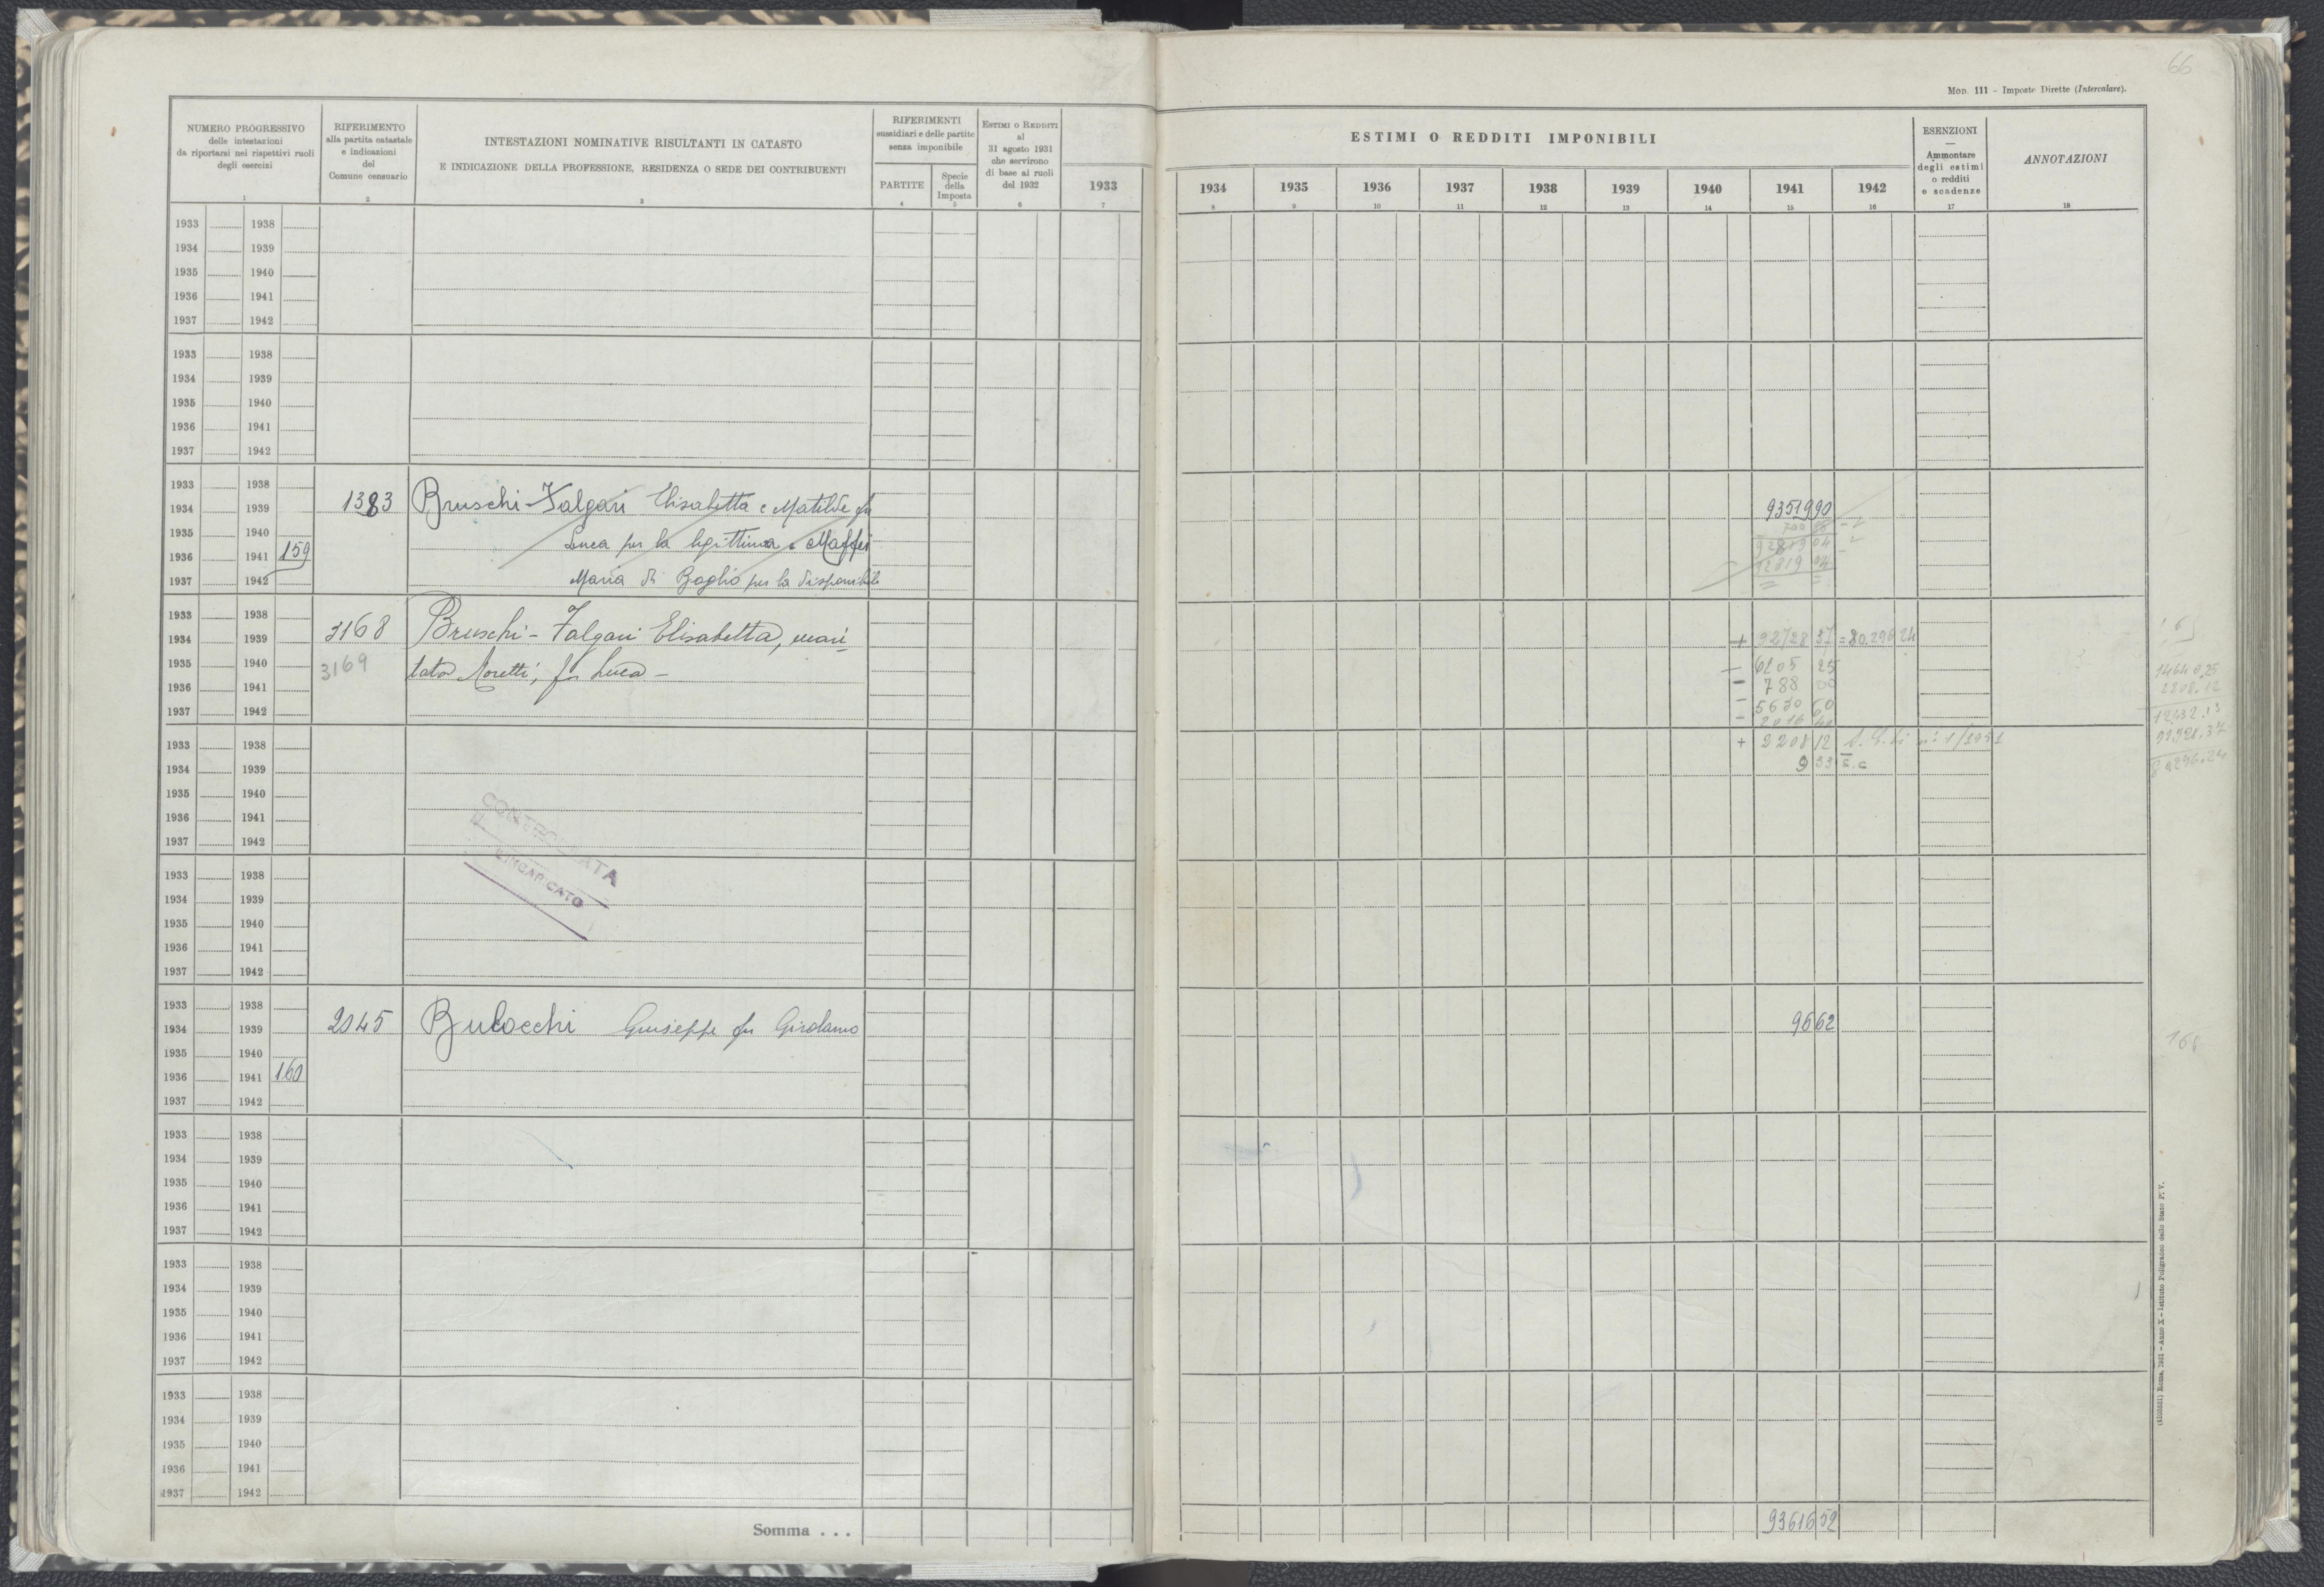 66
MOD. 111 – Imposte Dirette (Intercalare).
NUMERO PROGRESSIVO
delle intestazioni
da riportarsi nei rispettivi ruoli
degli esercizi
1
RIFERIMENTO
alla partita catastale
e indicazioni
del
Comune censuario
2
INTESTAZIONI NOMINATIVE RISULTANTI IN CATASTO
E INDICAZIONE DELLA PROFESSIONE, RESIDENZA O SEDE DEI CONTRIBUENTI
3
RIFERIMENTI
sussidiari e delle partite
senza imponibile
PARTITE
4
Specie
della
Imposta
5
ESTIMI O REDDITI
al
31 agosto 1931
che servirono
di base ai ruoli
del 1932
6
1933
7
ESTIMI O REDDITI IMPONIBILI
1934 1935 1936 1937 1938 1939 1940 1941 1942
8 9 10 11 12 13 14 15 16
ESENZIONI
—
Ammontare
degli estimi
o redditi
e scadenze
17
ANNOTAZIONI
18
1933 1938
1934 1939
1935 1940
1936 1941
1937 1942
1933 1938
1934 1939
1935 1940
1936 1941
1937 1942
1933 1938
1934 1939 1383 Bruschi-Falgari Elisabetta e Matilde fu 93519 90
1935 1940 Luca per la legittima e Maffei
1936 1941 159
1937 1942 Maria di Baglio per la disponibile
1933 1938
1934 1939 3168 Bruschi-Falgari Elisabetta, mari- + 92728 37 = 80.296 24
1935 1940 3169 tata Moretti, fu Luca – – 6205 25
1936 1941 – 788 00
1937 1942 – 5630 60
– 2016 40
1933 1938 + 2208 12
1934 1939 9 33 s.c
1935 1940
1936 1941
1937 1942
14640.25
2208.12
12432.13
92728.37
80296.24
CONTROLLATA
L'INCARICATO
1933 1938
1934 1939
1935 1940
1936 1941
1937 1942
1933 1938
1934 1939 2045 Bulocchi Giuseppe fu Girolamo 96 62
1935 1940
1936 1941 160
1937 1942
1933 1938
1934 1939
1935 1940
1936 1941
1937 1942
1933 1938
1934 1939
1935 1940
1936 1941
1937 1942
1933 1938
1934 1939
1935 1940
1936 1941
1937 1942
Somma . . . 93616 52
(4100851) Roma, 1931 – Anno X – Istituto Poligrafico dello Stato P. V.